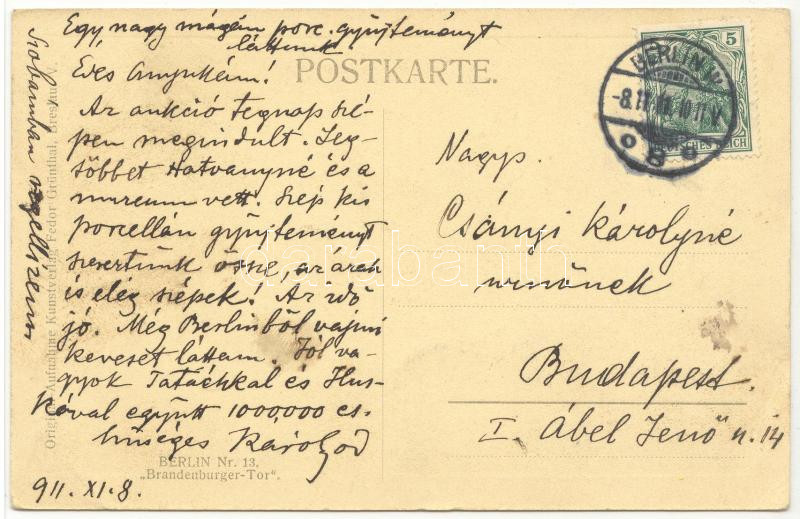 Egy nagy magán porc. gyüjteményt
láttunk
Édes Anyukám!
POSTKARTE.
Az aukció tegnap szé-
pen megindult. Leg-
többet Hatvanyné és a
muzeum vett. Szép kis
porcellán gyüjteményt
szereztünk össze, az árak
is elég szépek! Az idő
jó. Még Berlinből vajmi
keveset láttam. Jól va-
gyok
együtt 1000000 cs.
hűséges Károlyod
911. XI. 8.
Szobámban
Original-Aufnahme Kunstverlag Fedor Grünthal, Breslau V.
BERLIN Nr. 13.
„Brandenburger-Tor".
5
DEUTSCHES REICH
BERLIN W
-8.11.11. 10-11V
Nagys.
Csányi Károlyné
urnőnek
Budapest.
I. Ábel Jenő u. 14